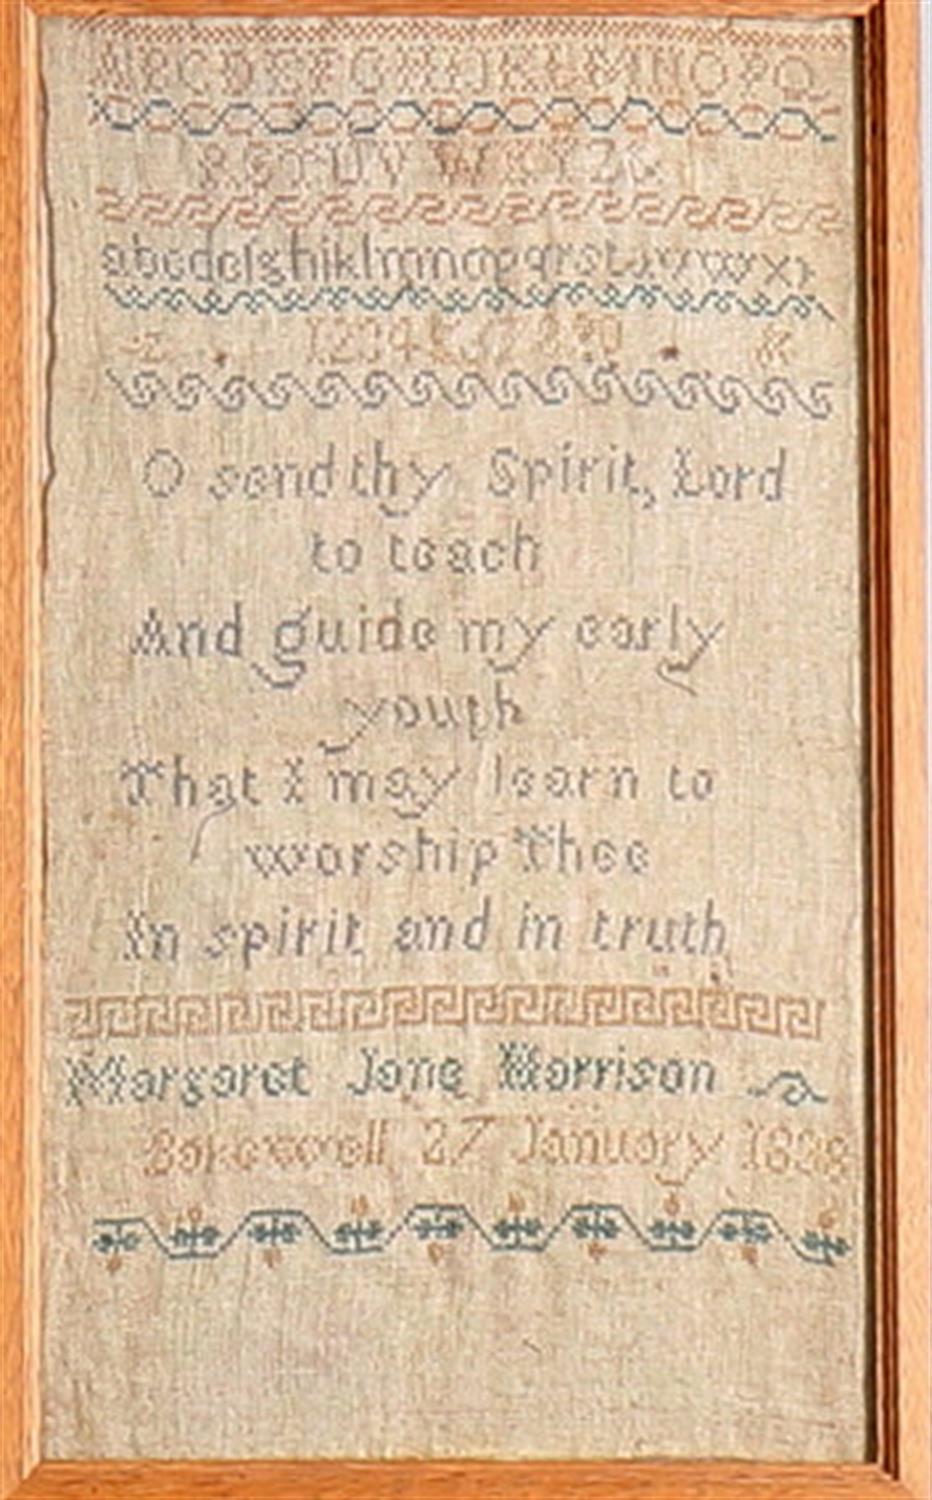 A B C D E F G H I J K L M N O P Q
R S T U V W X Y Z &
a b c d e f g h i k l m n o p q r s t u v w x y
z 1 2 3 4 5 6 7 8 9 0 &
O send thy Spirit, Lord
to teach
And guide my early
youth
That I may learn to
worship Thee
In spirit and in truth
Margaret Jane Morrison
Bakewell 27 January 1838